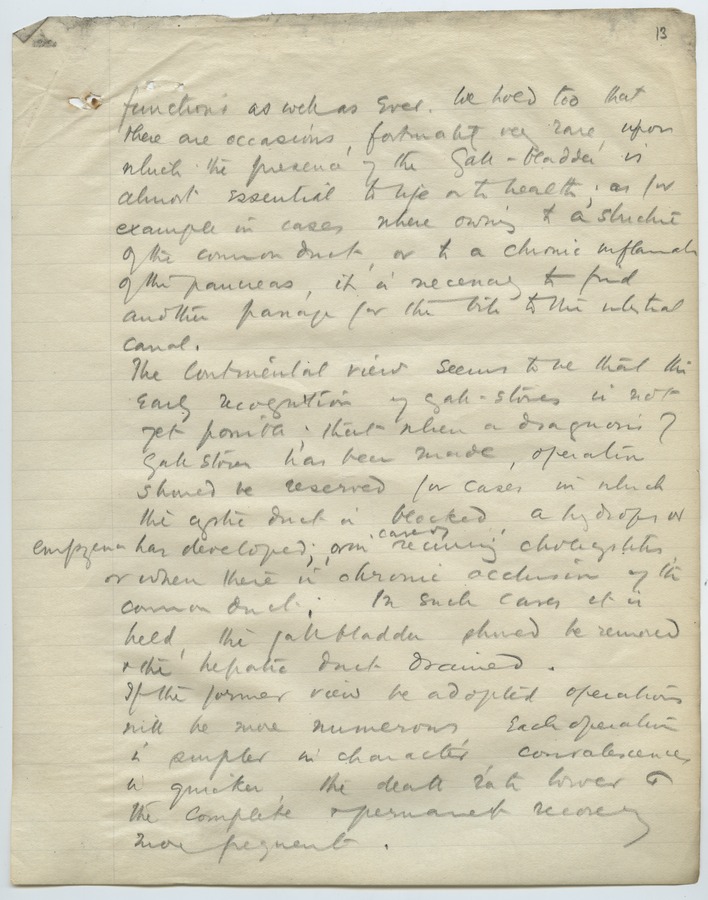 13
functions as well as ever. We hold too that
there are occasions, fortunately very rare, upon
which the presence of the Gall-bladder is
almost essential to life or to health; as for
example in cases where owing to a stricture
of the common duct, or to a chronic inflammation
of the pancreas, it is necessary to find
another passage for the bile to the intestinal
canal.
The Continental view seems to be that the
early recognition of gall-stones is not
yet possible; that when a diagnosis of
Gall stones has been made, operation
should be reserved for cases in which
the cystic duct is blocked, a hydrops or
empyema has developed; or in cases of recurring cholecystitis,
or when there is chronic occlusion of the
common duct; In such cases it is
held, the gallbladder should be removed
& the hepatic duct drained.
If the former view be adopted operations
will be more numerous, Each operation
is simpler in character, convalescence
is quicker, the death rate lower &
the complete & permanent recovery
more frequent.